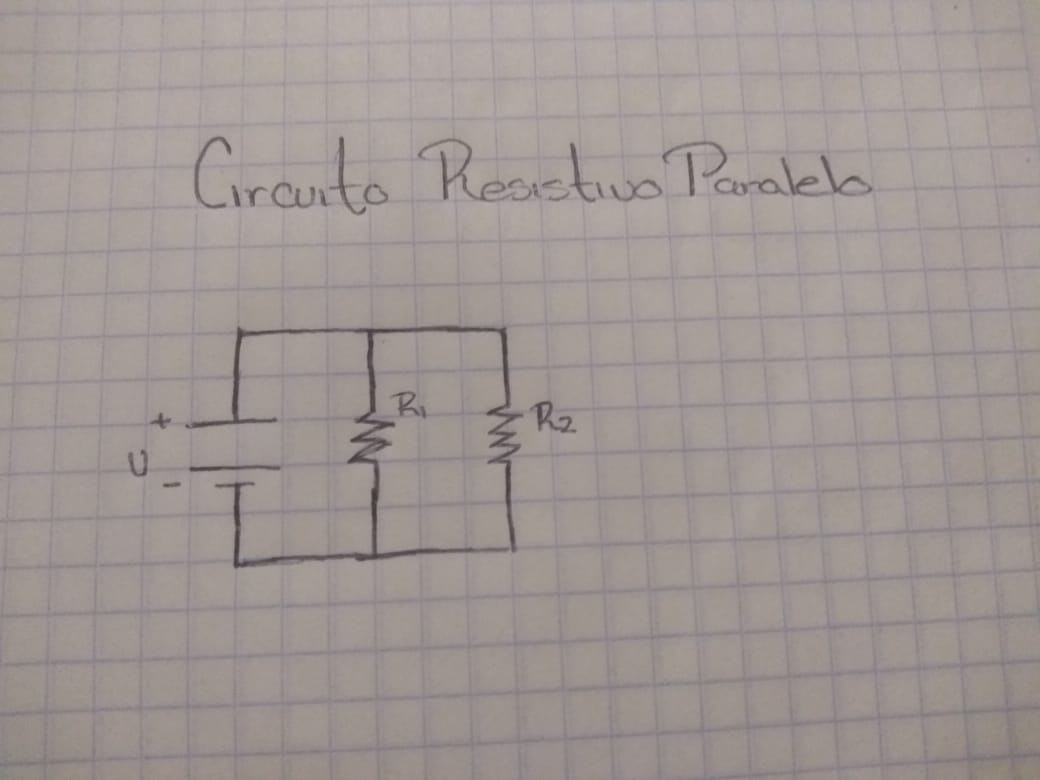 Circuito Resistivo Paralelo
R1
R2
+
U
-